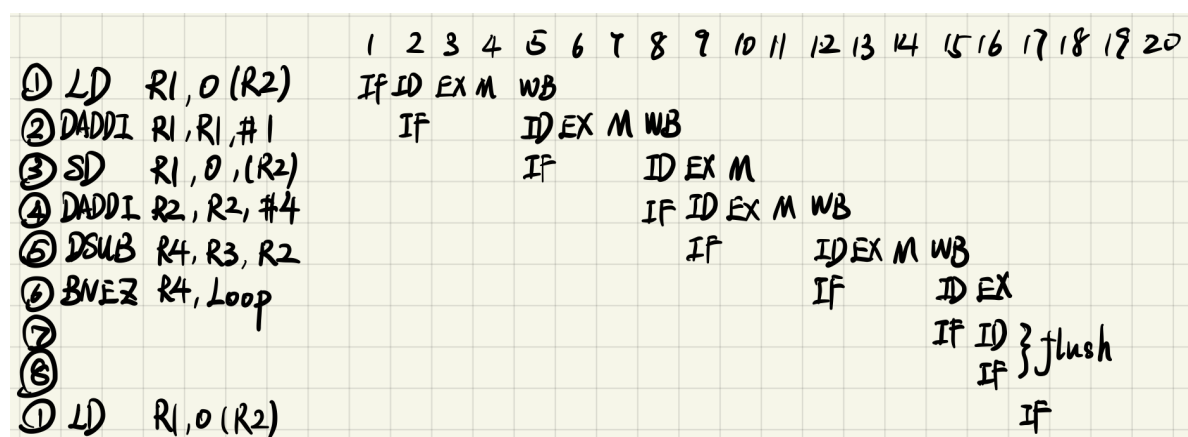 1 2 3 4 5 6 7 8 9 10 11 12 13 14 15 16 17 18 19 20
① LD R1, 0 (R2) IF ID EX M WB
② DADDI R1, R1, #1 IF ID EX M WB
③ SD R1, 0, (R2) IF ID EX M
④ DADDI R2, R2, #4 IF ID EX M WB
⑤ DSUB R4, R3, R2 IF ID EX M WB
⑥ BNEZ R4, Loop IF ID EX
⑦ IF ID } flush
⑧ IF
① LD R1, 0 (R2) IF